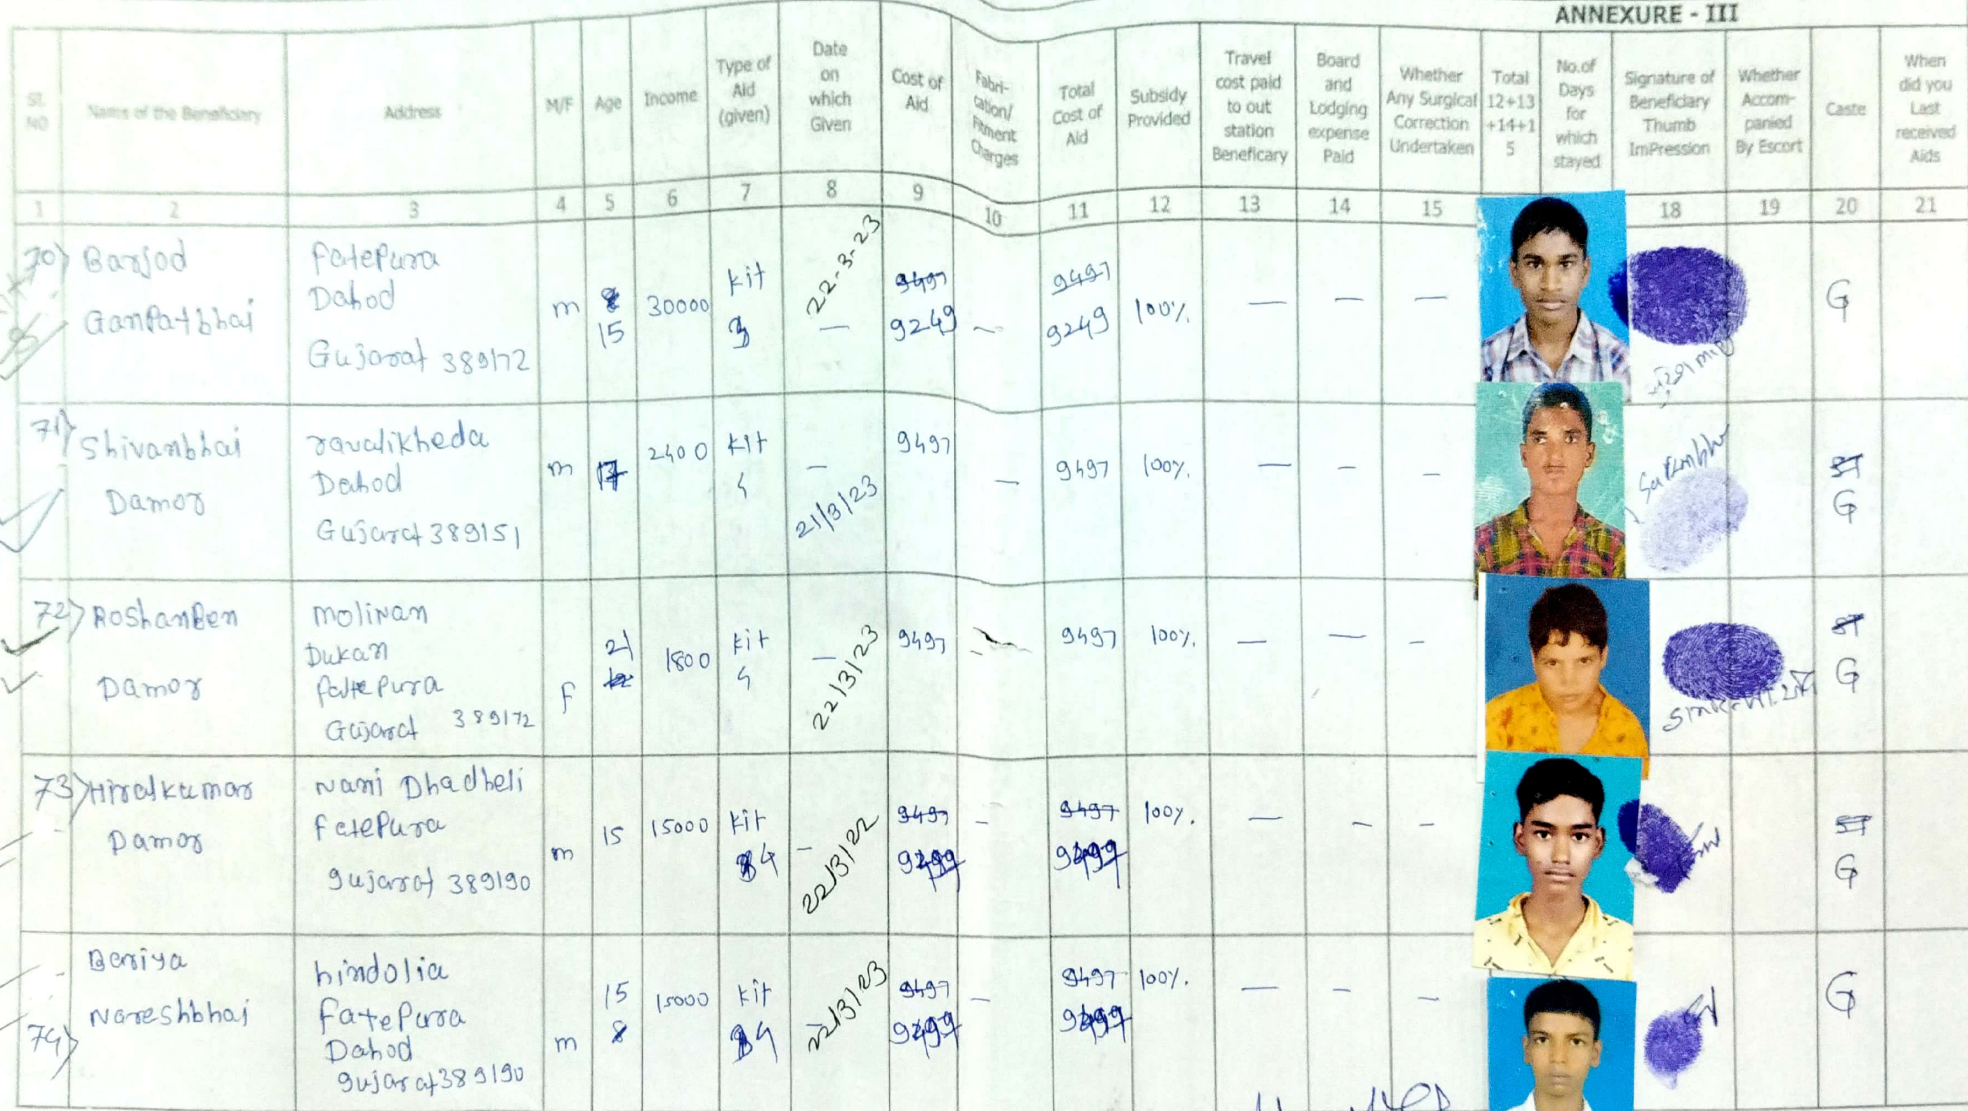 ANNEXURE - III
Sl. NO
Name of the Beneficiary
Address
M/F
Age
Income
Type of Aid (given)
Date on which Given
Cost of Aid
Fabri-cation/ Fitment Charges
Total Cost of Aid
Subsidy Provided
Travel cost paid to out station Beneficary
Board and Lodging expense Paid
Whether Any Surgical Correction Undertaken
Total 12+13 +14+1 5
No.of Days for which stayed
Signature of Beneficiary Thumb ImPression
Whether Accom-panied By Escort
Caste
When did you Last received Aids
1 2 3 4 5 6 7 8 9 10 11 12 13 14 15 18 19 20 21
70) Barjod GanPatbhai
fatePura
Dahod
Gujarat 389172
m
15
30000
kit
3
22-3-23
—
9497
9249
9497
9249
100%.
— — —
G
71) Shivambhai Damor
ravalikheda
Dahod
Gujarat 389151
m
17
2400
kit
4
—
21/3/23
9497
—
9497
100%.
— — —
ST
G
72) RoshanBen Damor
molivan
Dukan
fatePura
Gujarat 389172
f
21
12
1800
kit
4
—
22/3/23
9497
9497
100%.
— — —
ST
G
73) Hiralkumar Damor
Nani Dhadheli
fatePura
gujarat 389190
m
15
15000
kit
4
—
22/3/22
9497
9499
—
9497
9499
100%.
— — —
ST
G
74) Bariya Nareshbhai
hindolia
fatePura
Dahod
gujarat 389190
m
15
8
15000
kit
4
22/3/23
9497
9499
—
9497
9499
100%.
— — —
G